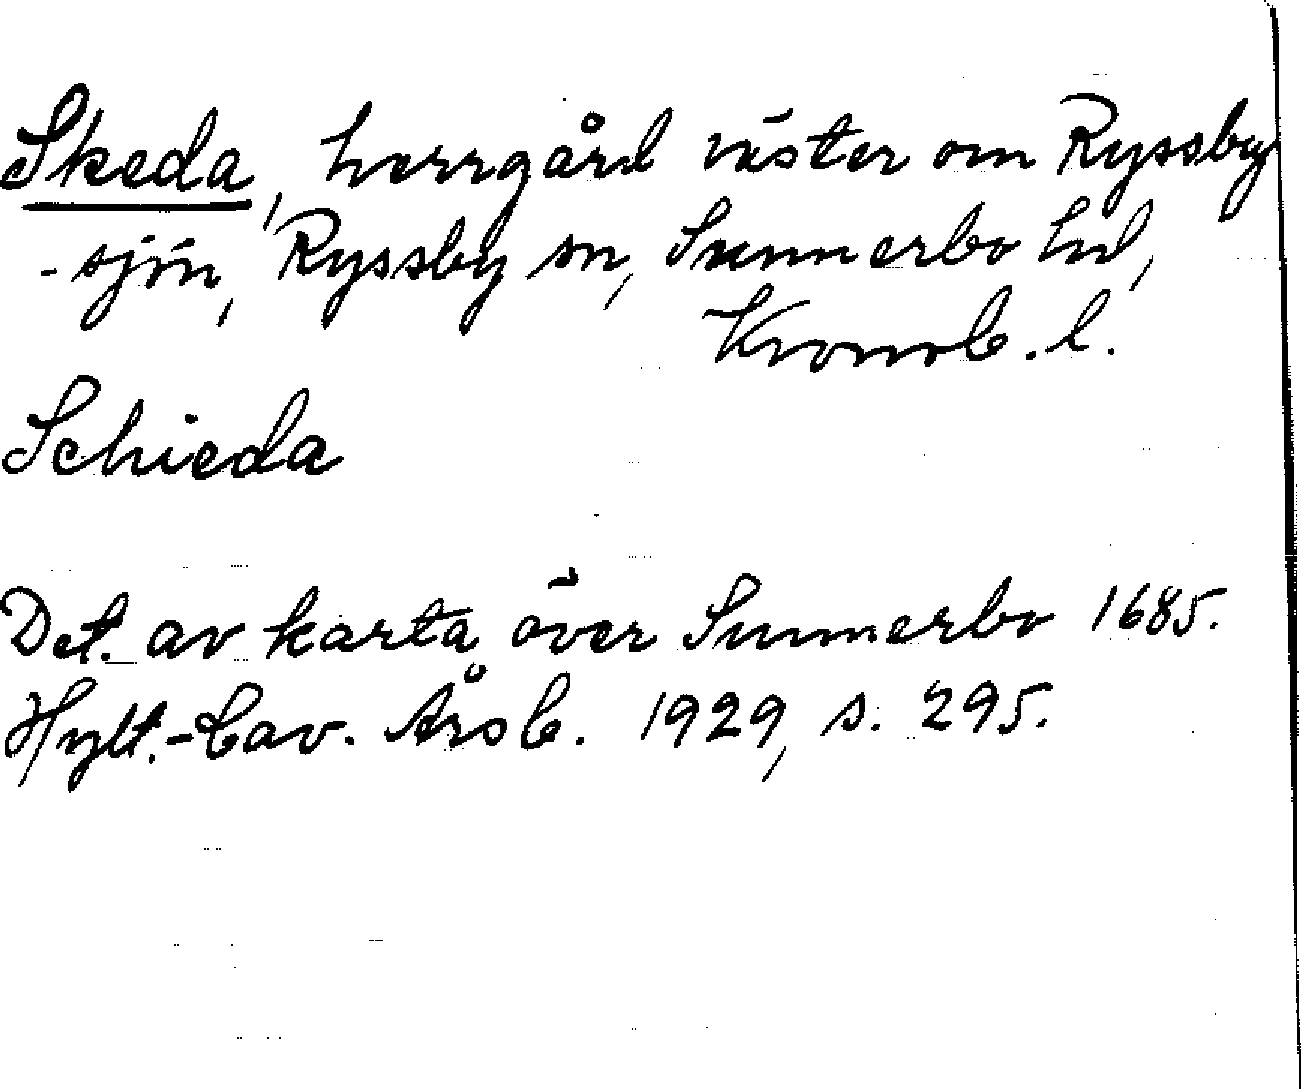 Skeda, herrgård väster om Ryssby
-sjön, Ryssby sn, Sunnerbo hd,
Kronob. l.
Schieda
Det. av karta över Sunnerbo 1685.
Hylt.-Cav. Årsb. 1929, s. 295.